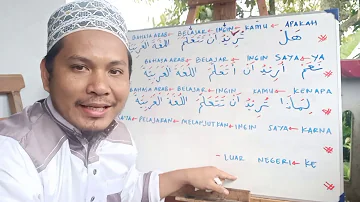 BAHASA ARAB ← BELAJAR ← INGIN ← KAMU ← APAKAH
هَلْ تُرِيْدُ أَنْ تَتَعَلَّمَ اللُّغَةَ الْعَرَبِيَّةَ
BAHASA ARAB ← BELAJAR ← INGIN SAYA ← YA
نَعَمْ أُرِيْدُ أَنْ أَتَعَلَّمَ اللُّغَةَ الْعَرَبِيَّةَ
BAHASA ARAB ← BELAJAR ← INGIN ← KAMU ← KENAPA
لِمَاذَا تُرِيْدُ أَنْ تَتَعَلَّمَ اللُّغَةَ الْعَرَبِيَّةَ
SAYA ← PELAJARAN ← MELANJUTKAN ← INGIN SAYA ← KARNA
- LUAR NEGERI ← KE